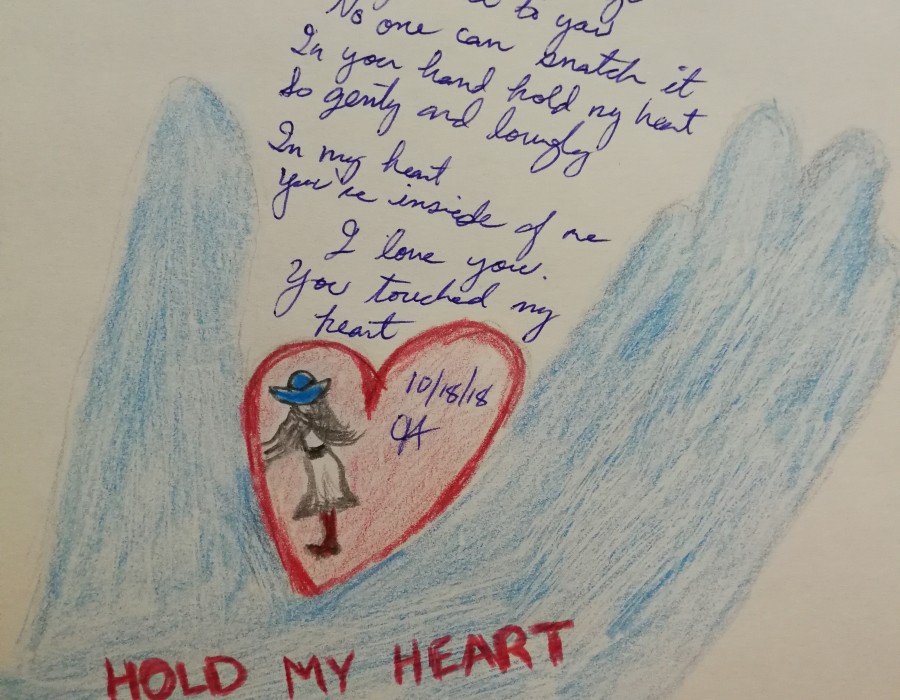 to you
No one can snatch it
In your hand hold my heart
So gently and lovingly
In my heart
You're inside of me
I love you.
You touched my
heart
10/18/18
HOLD MY HEART